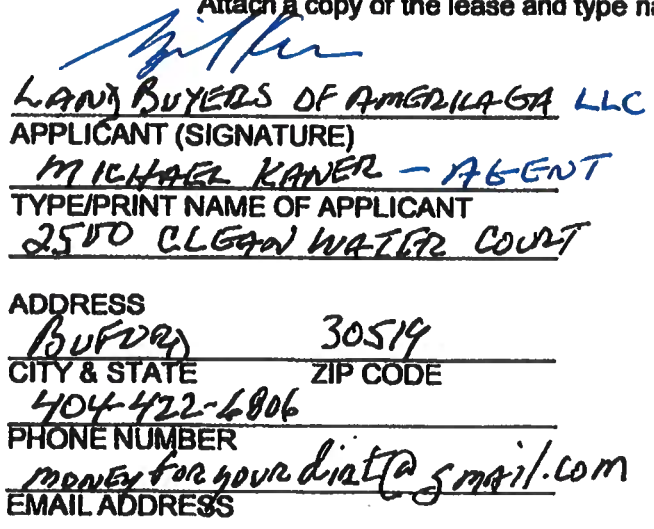 Attach a copy of the lease and type na
LAND BUYERS OF AMERICA-GA LLC
APPLICANT (SIGNATURE)
MICHAEL KANER - AGENT
TYPE/PRINT NAME OF APPLICANT
2500 CLEAN WATER COURT
ADDRESS
BUFORD 30519
CITY & STATE ZIP CODE
404-422-6806
PHONE NUMBER
moneyforyourdirt@gmail.com
EMAIL ADDRESS